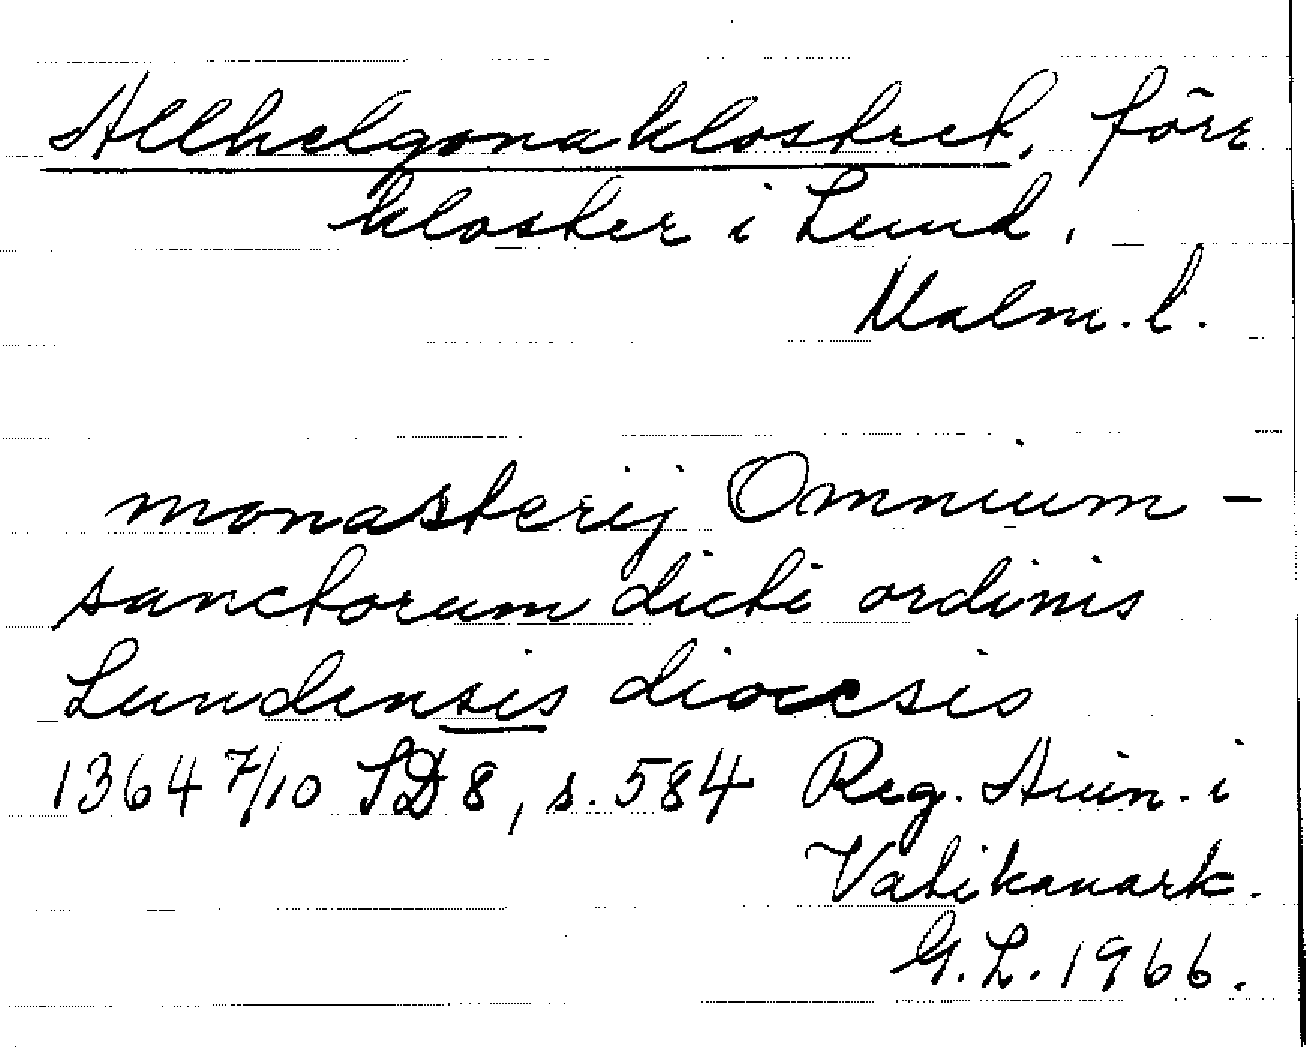 Allhelgonaklostret, förr
kloster i Lund,
Malm. l.
monasterij Omnium-
sanctorum dicti ordinis
Lundensis diocesis
1364 7/10 SD 8, s. 584 Reg. Avin. i
Vatikanark.
G. L. 1966.